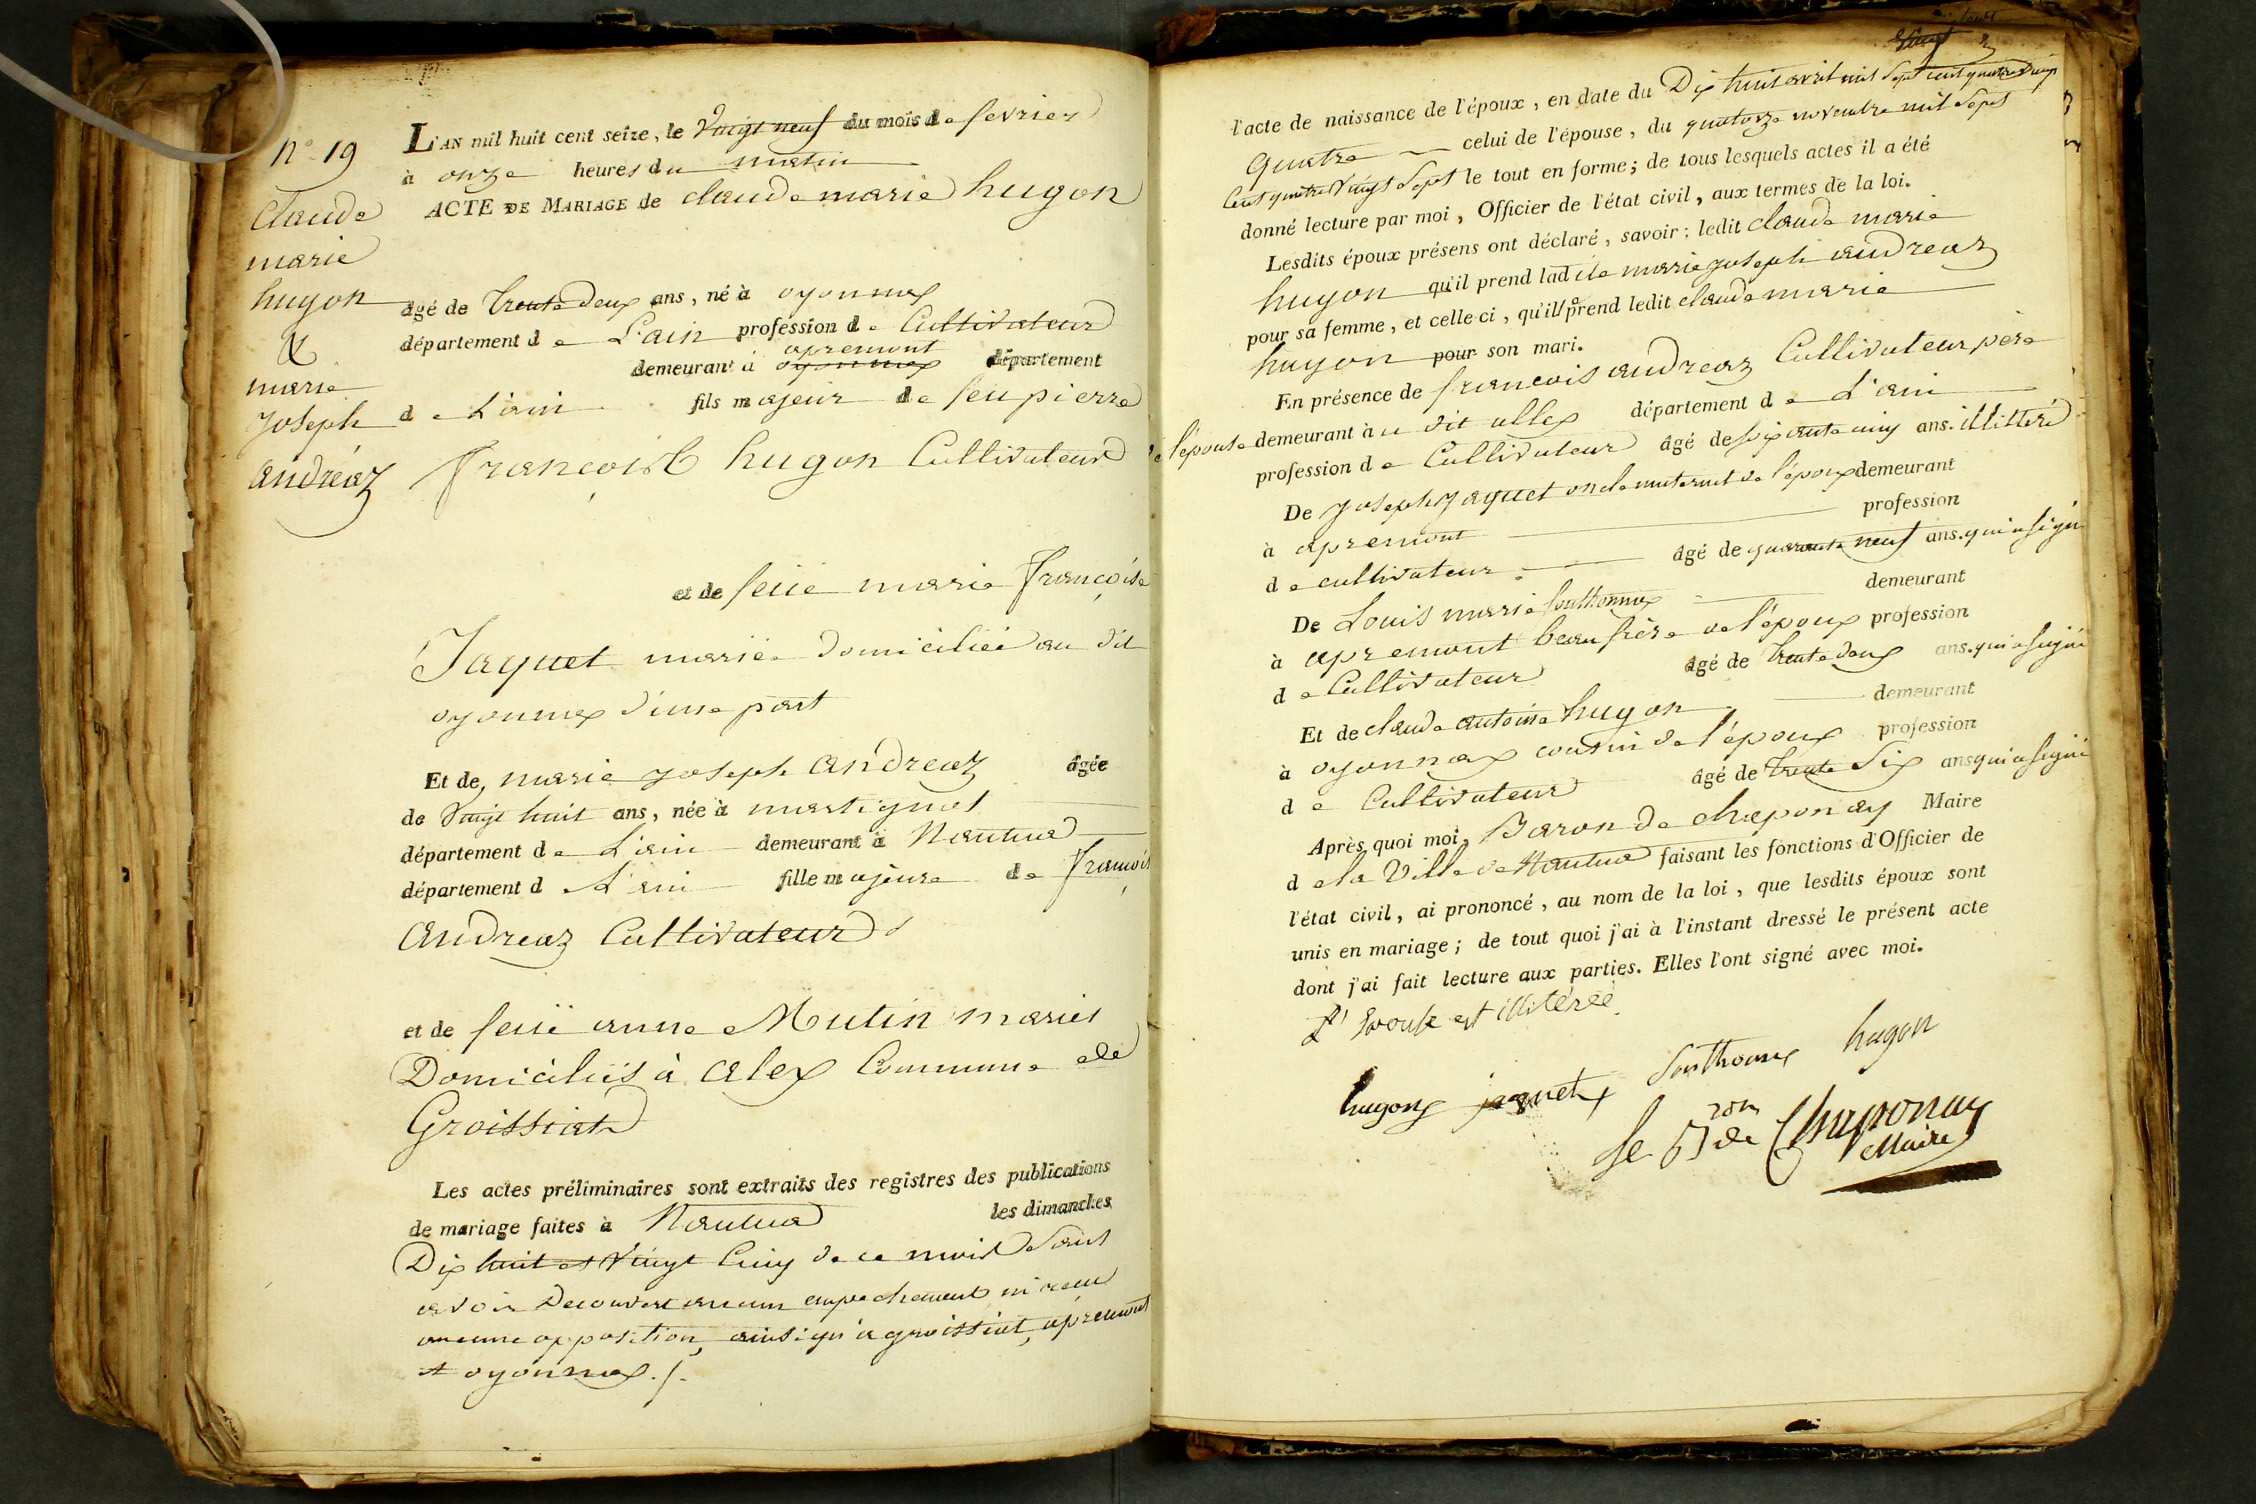 N° 19
Claude
marie
hugon
&
marie
joseph
andréaz
L'AN mil huit cent seize, le Vingt neuf du mois de fevrier
à onze heures du matin
ACTE DE MARIAGE de claude marie hugon
âgé de trente deux ans, né à oyonnax
département de L'ain profession de Cultivateur
apremont
demeurant à oyonnax département
de L'ain fils majeur de feu pierre
françois hugon Cultivateur
et de feüe marie françoise
Jaquet mariée domiciliée au dit
oyonnax d'une part
Et de, marie joseph andreaz âgée
de Vingt huit ans, née à martignat
département de L'ain demeurant à Nantua
département de L'ain fille majeure de françois
andreaz Cultivateur
et de feüe anne Mutin mariés
Domiciliés à alex Commune de
Groissiat
Les actes préliminaires sont extraits des registres des publications
de mariage faites à Nantua les dimanches
Dix huit et Vingt Cinq de ce mois Sans
avoir Decouvert aucun empechement ni reçu
aucune opposition, ainsi qu'a groissiat, apremont
et oyonnax ./.
l'acte de naissance de l'époux, en date du Dix huit avril mil Sept cent quatre Vingt
quatre celui de l'épouse, du quatorze novembre mil Sept
Cent quatre Vingt Sept le tout en forme; de tous lesquels actes il a été
donné lecture par moi, Officier de l'état civil, aux termes de la loi.
Lesdits époux présens ont déclaré, savoir; ledit claude marie
hugon qu'il prend ladite marie joseph andreaz
pour sa femme, et celle-ci, qu'elle prend ledit claude marie
hugon pour son mari.
En présence de françois andreaz Cultivateur père
de l'épouse demeurant à u dit allex département de L'ain
profession de Cultivateur âgé de soixante cinq ans. illitteré
De joseph jaquet oncle maternel de l'époux demeurant
à apremont profession
de cultivateur âgé de quarante neuf ans. qui a signé
De Louis marie Southonnax demeurant
à apremont beau frère de l'époux profession
de Cultivateur âgé de trente deux ans. qui a signé
Et de claude antoine hugon demeurant
à oyonnax cousin de l'époux profession
de Cultivateur âgé de trente Six ans qui a signé
Après quoi moi, Baron de chaponay Maire
de la Ville de Nantua faisant les fonctions d'Officier de
l'état civil, ai prononcé, au nom de la loi, que lesdits époux sont
unis en mariage; de tout quoi j'ai à l'instant dressé le présent acte
dont j'ai fait lecture aux parties. Elles l'ont signé avec moi.
L'Epouse est illitérée.
hugon jaquet Southonnax hugon
Le Bron de Chaponay
Maire